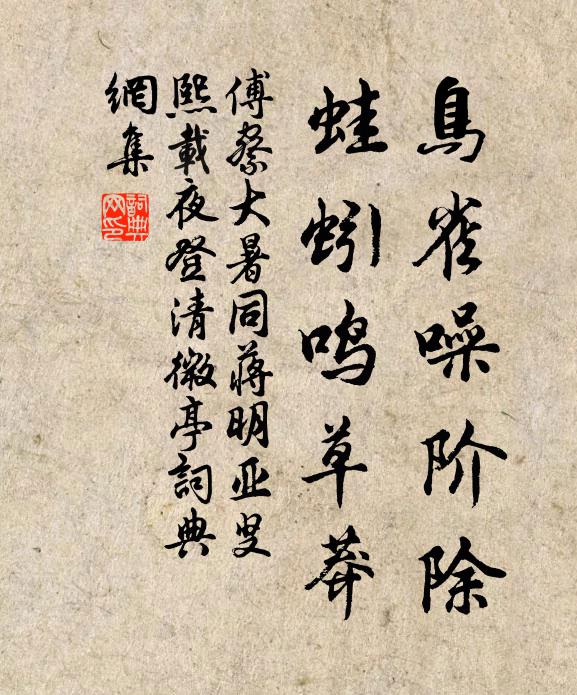 鳥雀噪阶除
蛙蚓鸣草莽
傅察大暑同蒋明亚叟
熙載夜登清微亭詞典
網集
詞典网印